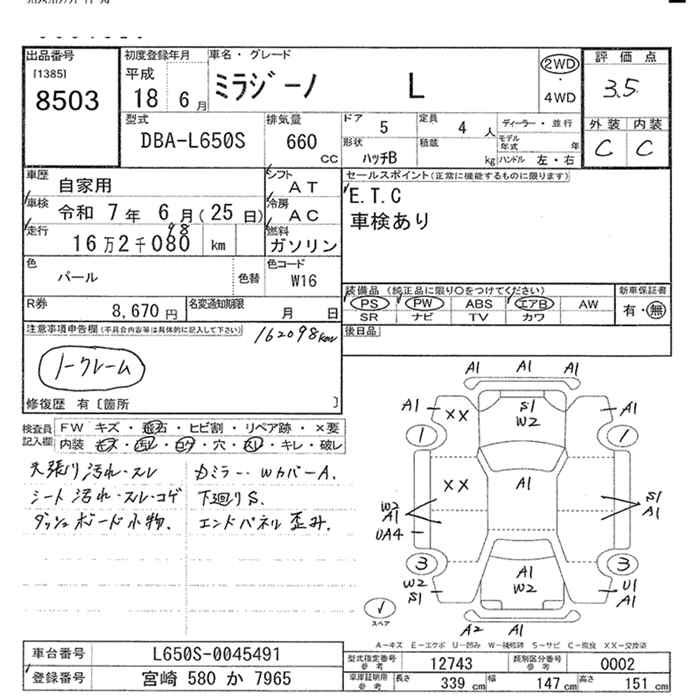 出品番号
[1385]
8503
初度登録年月
平成
18 6 月
車名・グレード
ミラジーノ L
2WD
・
4WD
評価点
3.5
外装 内装
C C
型式
DBA-L650S
排気量
660
cc
ドア
5
定員
4 人
ディーラー・並行
モデル年式 年
形状
ハッチB
積載
kg
ハンドル 左・右
車歴
自家用
シフト
AT
セールスポイント(正常に機能するものに限ります)
E.T.C
車検あり
車検
令和 7 年 6 月(25 日)
冷房
AC
走行
16 万 2 千 080 km
98
燃料
ガソリン
色
パール
色替
色コード
W16
装備品 (純正品に限り○をつけてください)
PS PW ABS エアB AW
SR ナビ TV カワ
新車保証書
有・無
R券
8,670 円
名変通知期限
月 日
後日品
注意事項申告欄(不具合内容等は具体的に記入して下さい)
162098km
ノークレーム
修復歴 有〔箇所 〕
検査員記入欄
FW キズ・飛石・ヒビ割・リペア跡・×要
内装・キズ・汚レ・コゲ・穴・スレ・キレ・破レ
天張り汚れ・スレ
シート汚れ・スレ・コゲ
ダッシュボード小物.
カミラー・WカバーA.
下廻りS.
エンドパネル歪み.
A1 A1
A1 XX S1 W2 A1
1 1
XX A1
W2 A1
UA4
S1 A1
3 3
W2 S1
A1 W2
U1 A1
A2 A1
スペア
A-キズ E-エクボ U-凹み W-補修跡 S-サビ C-腐食 XX-交換済
車台番号
L650S-0045491
登録番号
宮崎 580 か 7965
型式指定番号
参考
12743
類別区分番号
参考
0002
車庫証明用
参考
長さ
339 cm
幅
147 cm
高さ
151 cm